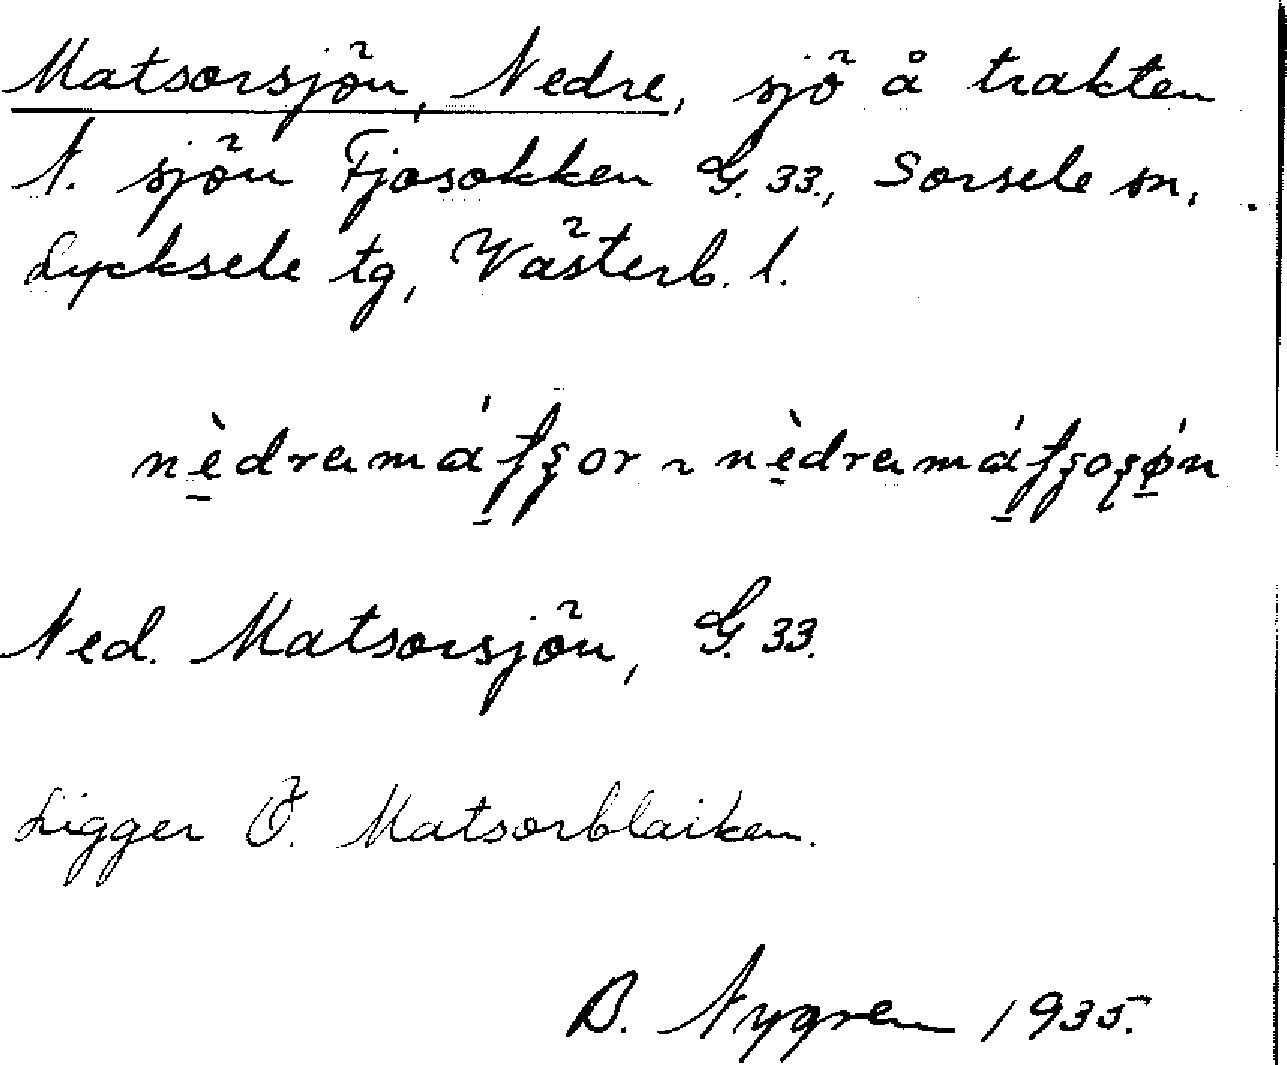 Matsorsjön, Nedre, sjö å trakten
N. sjön Fjosokken G. 33., Sorsele sn,
Lycksele tg, Västerb. l.
Ned. Matsorsjön, G. 33.
Ligger Ö. Matsorblaiken.
B. Nygren 1935.